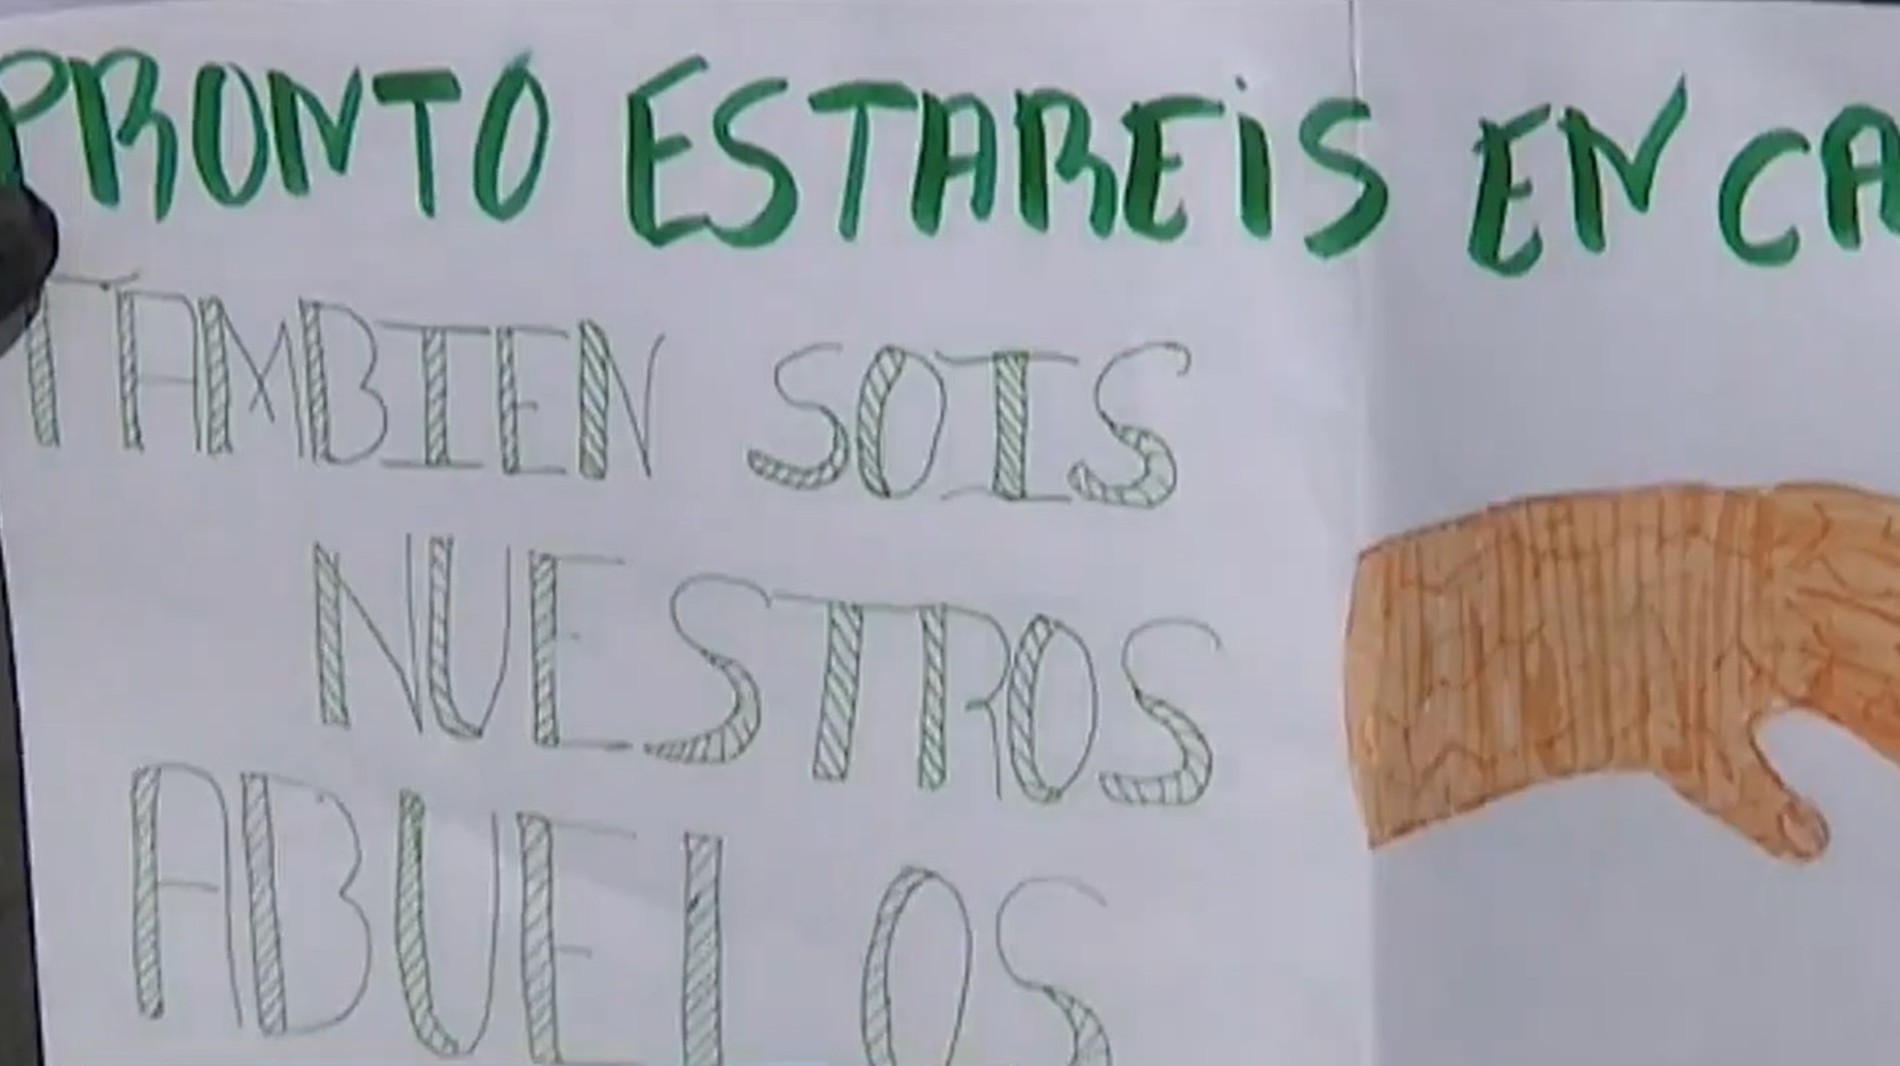 PRONTO ESTAREIS EN CA
TAMBIEN SOIS
NUESTROS
ABUELOS